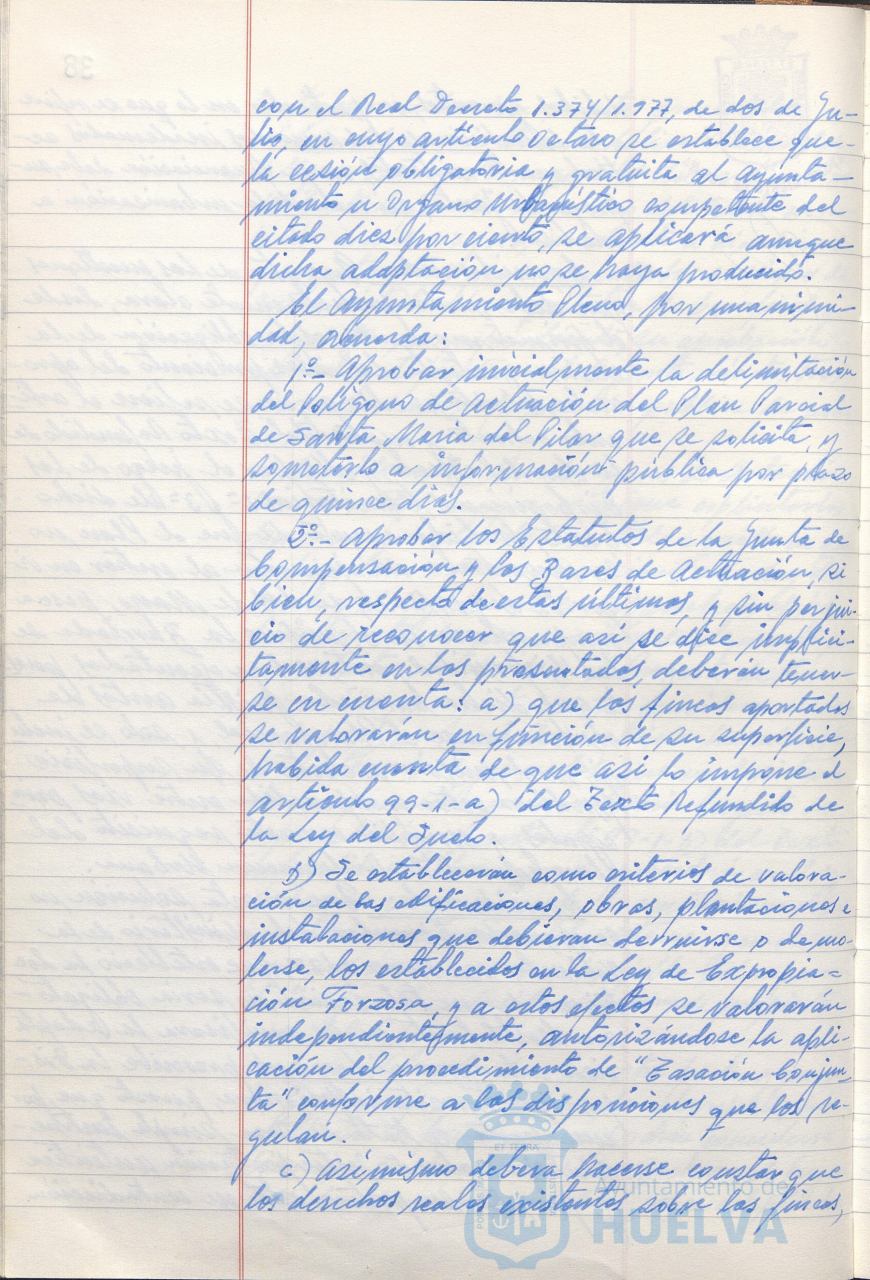 con el Real Decreto 1.374/1.977, de dos de Ju-
lio, en cuyo artículo octavo se establece que
la cesión obligatoria y gratuita al Ayunta-
miento u Organo Urbanístico competente del
citado diez por ciento, se aplicará aunque
dicha adaptación no se haya producido.
El Ayuntamiento Pleno, por unanimi-
dad, acuerda:
1º.- Aprobar inicialmente la delimitación
del Polígono de Actuación del Plan Parcial
de Santa María del Pilar que se solicita, y
someterlo a información pública por plazo
de quince días.
2º.- Aprobar los Estatutos de la Junta de
Compensación y las Bases de Actuación, si
bien, respecto de estas últimas, y sin perjui-
cio de reconocer que así se dice implíci-
tamente en las presentadas, deberán tener-
se en cuenta: a) que las fincas aportadas
se valorarán en función de su superficie,
habida cuenta de que así lo impone el
artículo 99-1-a) del Texto Refundido de
la Ley del Suelo.
b) Se establecerán como criterios de valora-
ción de las edificaciones, obras, plantaciones e
instalaciones que debieran derruirse o demo-
lerse, los establecidos en la Ley de Expropia=
ción Forzosa, y a estos efectos se valorarán
independientemente, autorizándose la apli-
cación del procedimiento de "Tasación Conjun-
ta" conforme a las disposiciones que los re-
gulan.
c) Asimismo deberá hacerse constar que
los derechos reales existentes sobre las fincas,
Ayuntamiento de
HUELVA